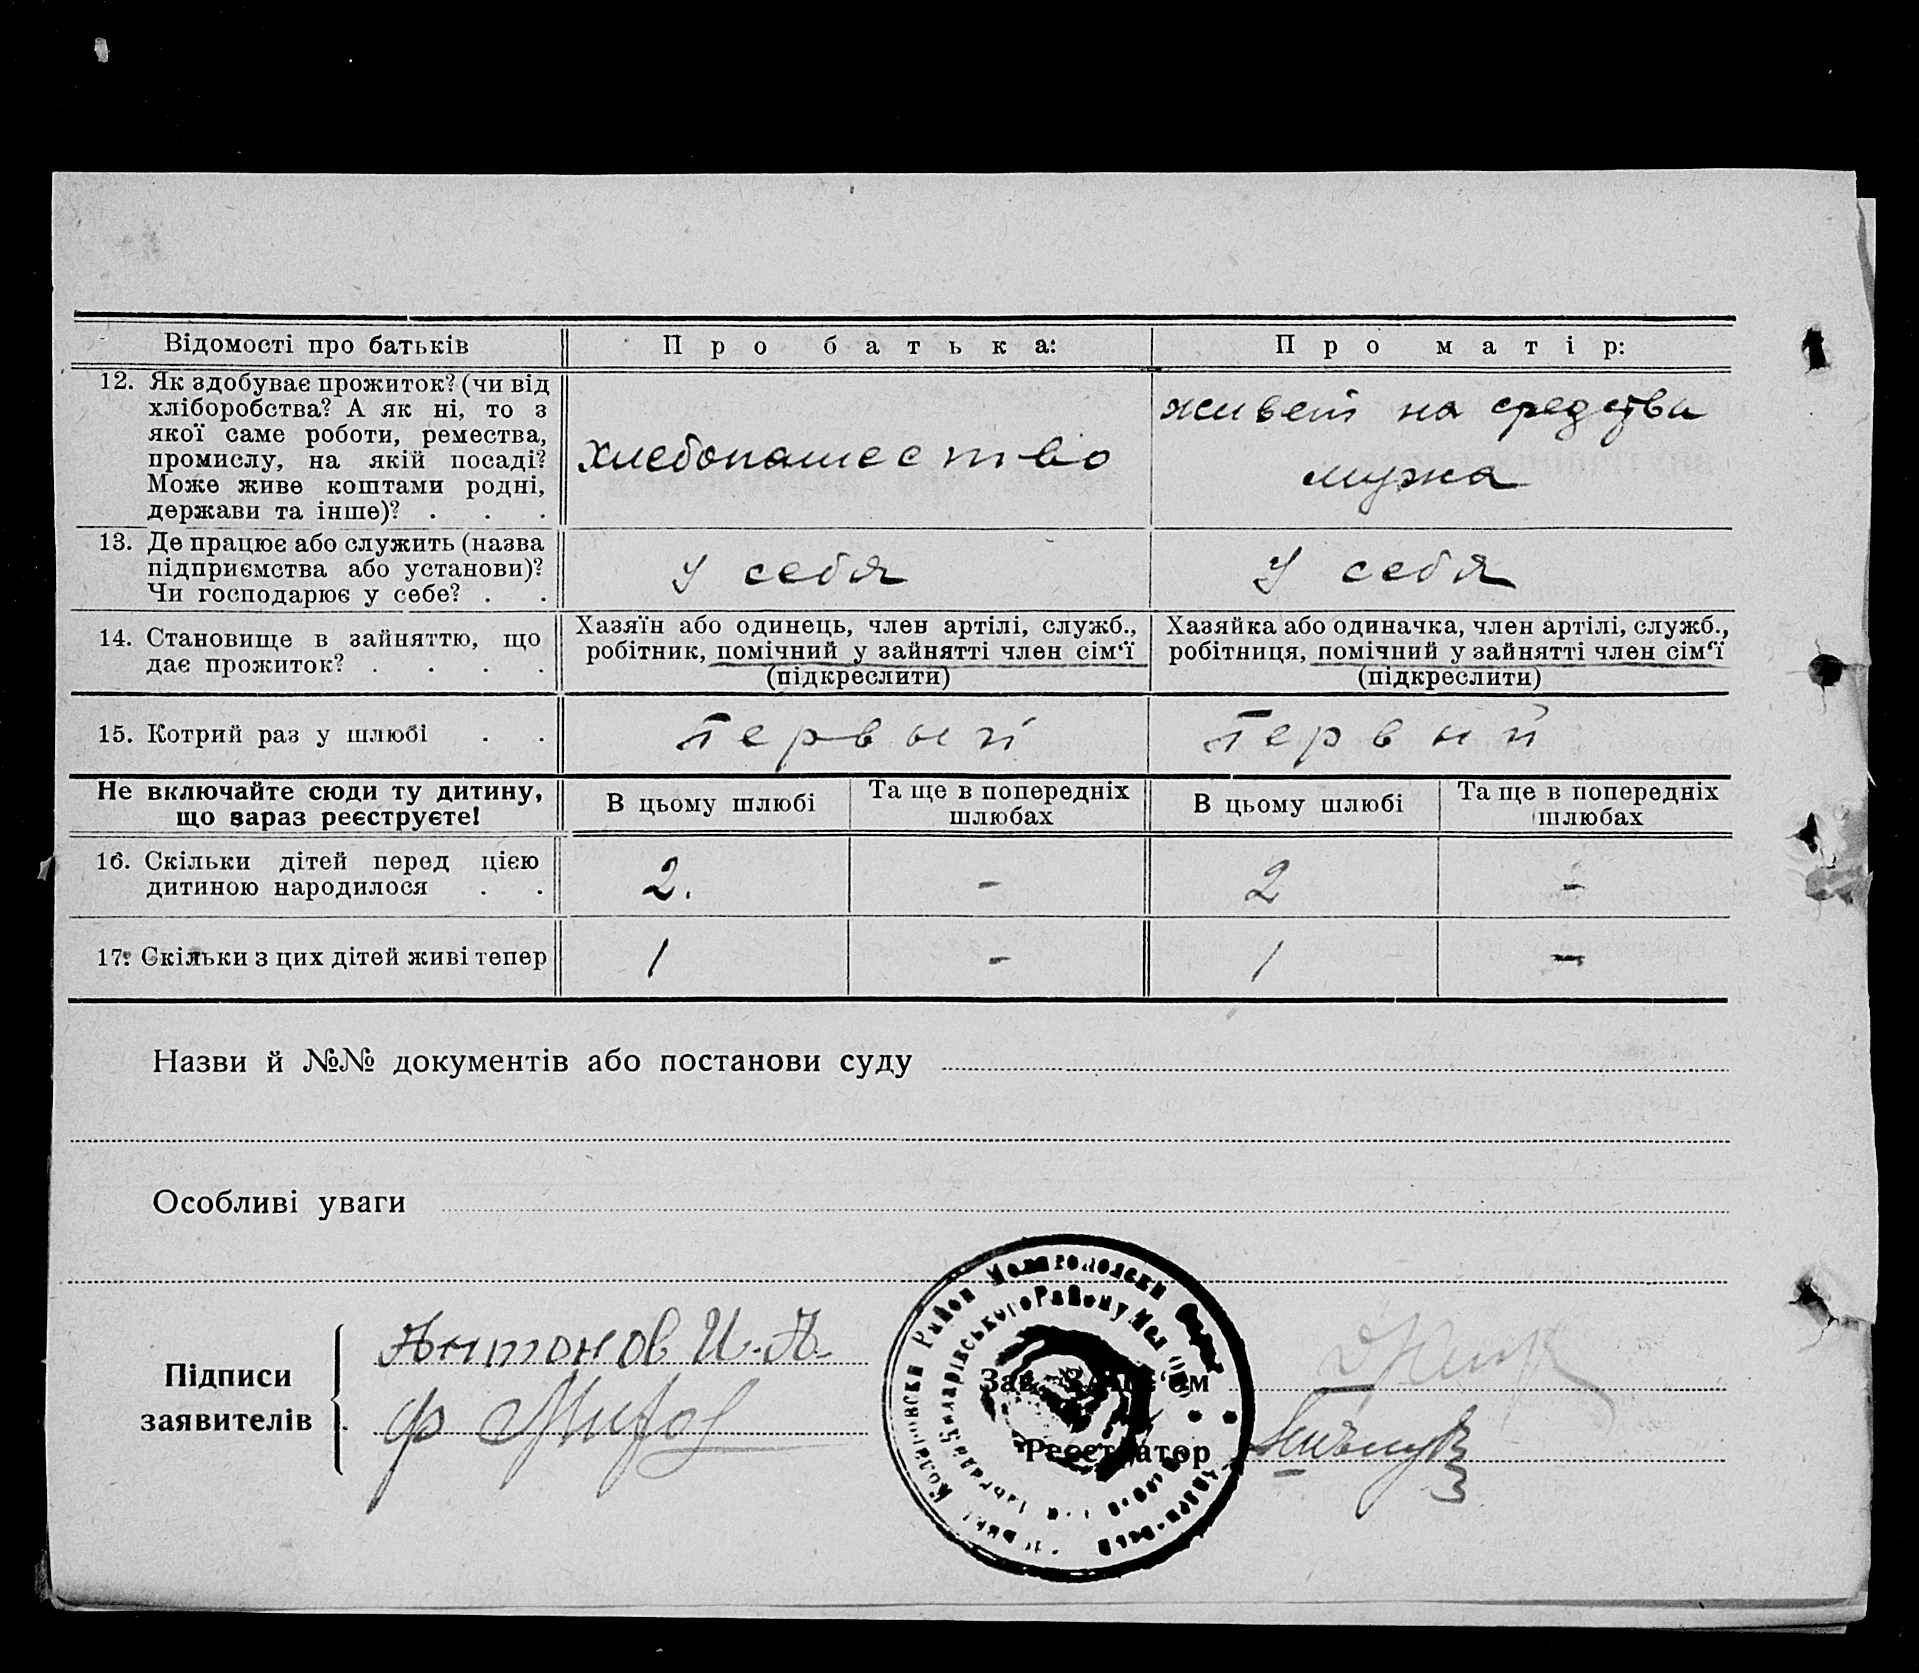 Відомості про батьків
Про батька:
Про матір:
12. Як здобуває прожиток? (чи від
хліборобства? А як ні, то з
якої саме роботи, ремества,
промислу, на якій посаді?
Може живе коштами родні,
держави та інше)? . . .
хлебопашество
живет на средства
мужа
13. Де працює або служить (назва
підприємства або установи)?
Чи господарює у себе? . .
у себя
у себя
14. Становище в зайняттю, що
дає прожиток? . . . .
Хазяїн або одинець, член артілі, служб.,
робітник, помічний у зайнятті член сім'ї
(підкреслити)
Хазяйка або одиначка, член артілі, служб.,
робітниця, помічний у зайнятті член сім'ї
(підкреслити)
15. Котрий раз у шлюбі . .
Первый
Первый
Не включайте сюди ту дитину,
що зараз реєструєте!
В цьому шлюбі
Та ще в попередніх
шлюбах
В цьому шлюбі
Та ще в попередніх
шлюбах
16. Скільки дітей перед цією
дитиною народилося . .
2.
-
2
-
17. Скільки з цих дітей живі тепер
1
-
1
-
Назви й №№ документів або постанови суду
Особливі уваги
Підписи
заявителів
Антонов И. А.
Ф
Зав. ЗАГС'ом
Реєстратор
Район Мелитополски
Району Мел